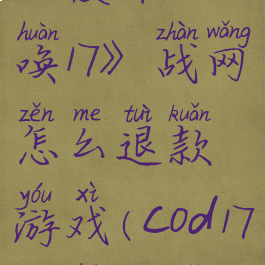 huàn zhàn wǎng
唤17》 战网
zěn me tuì kuǎn
怎么退款
yóu xì
游戏(cod17